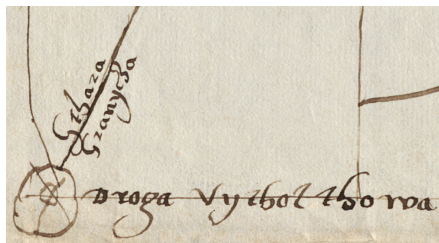 Sthara
Granycza
Droga Vytholthowa